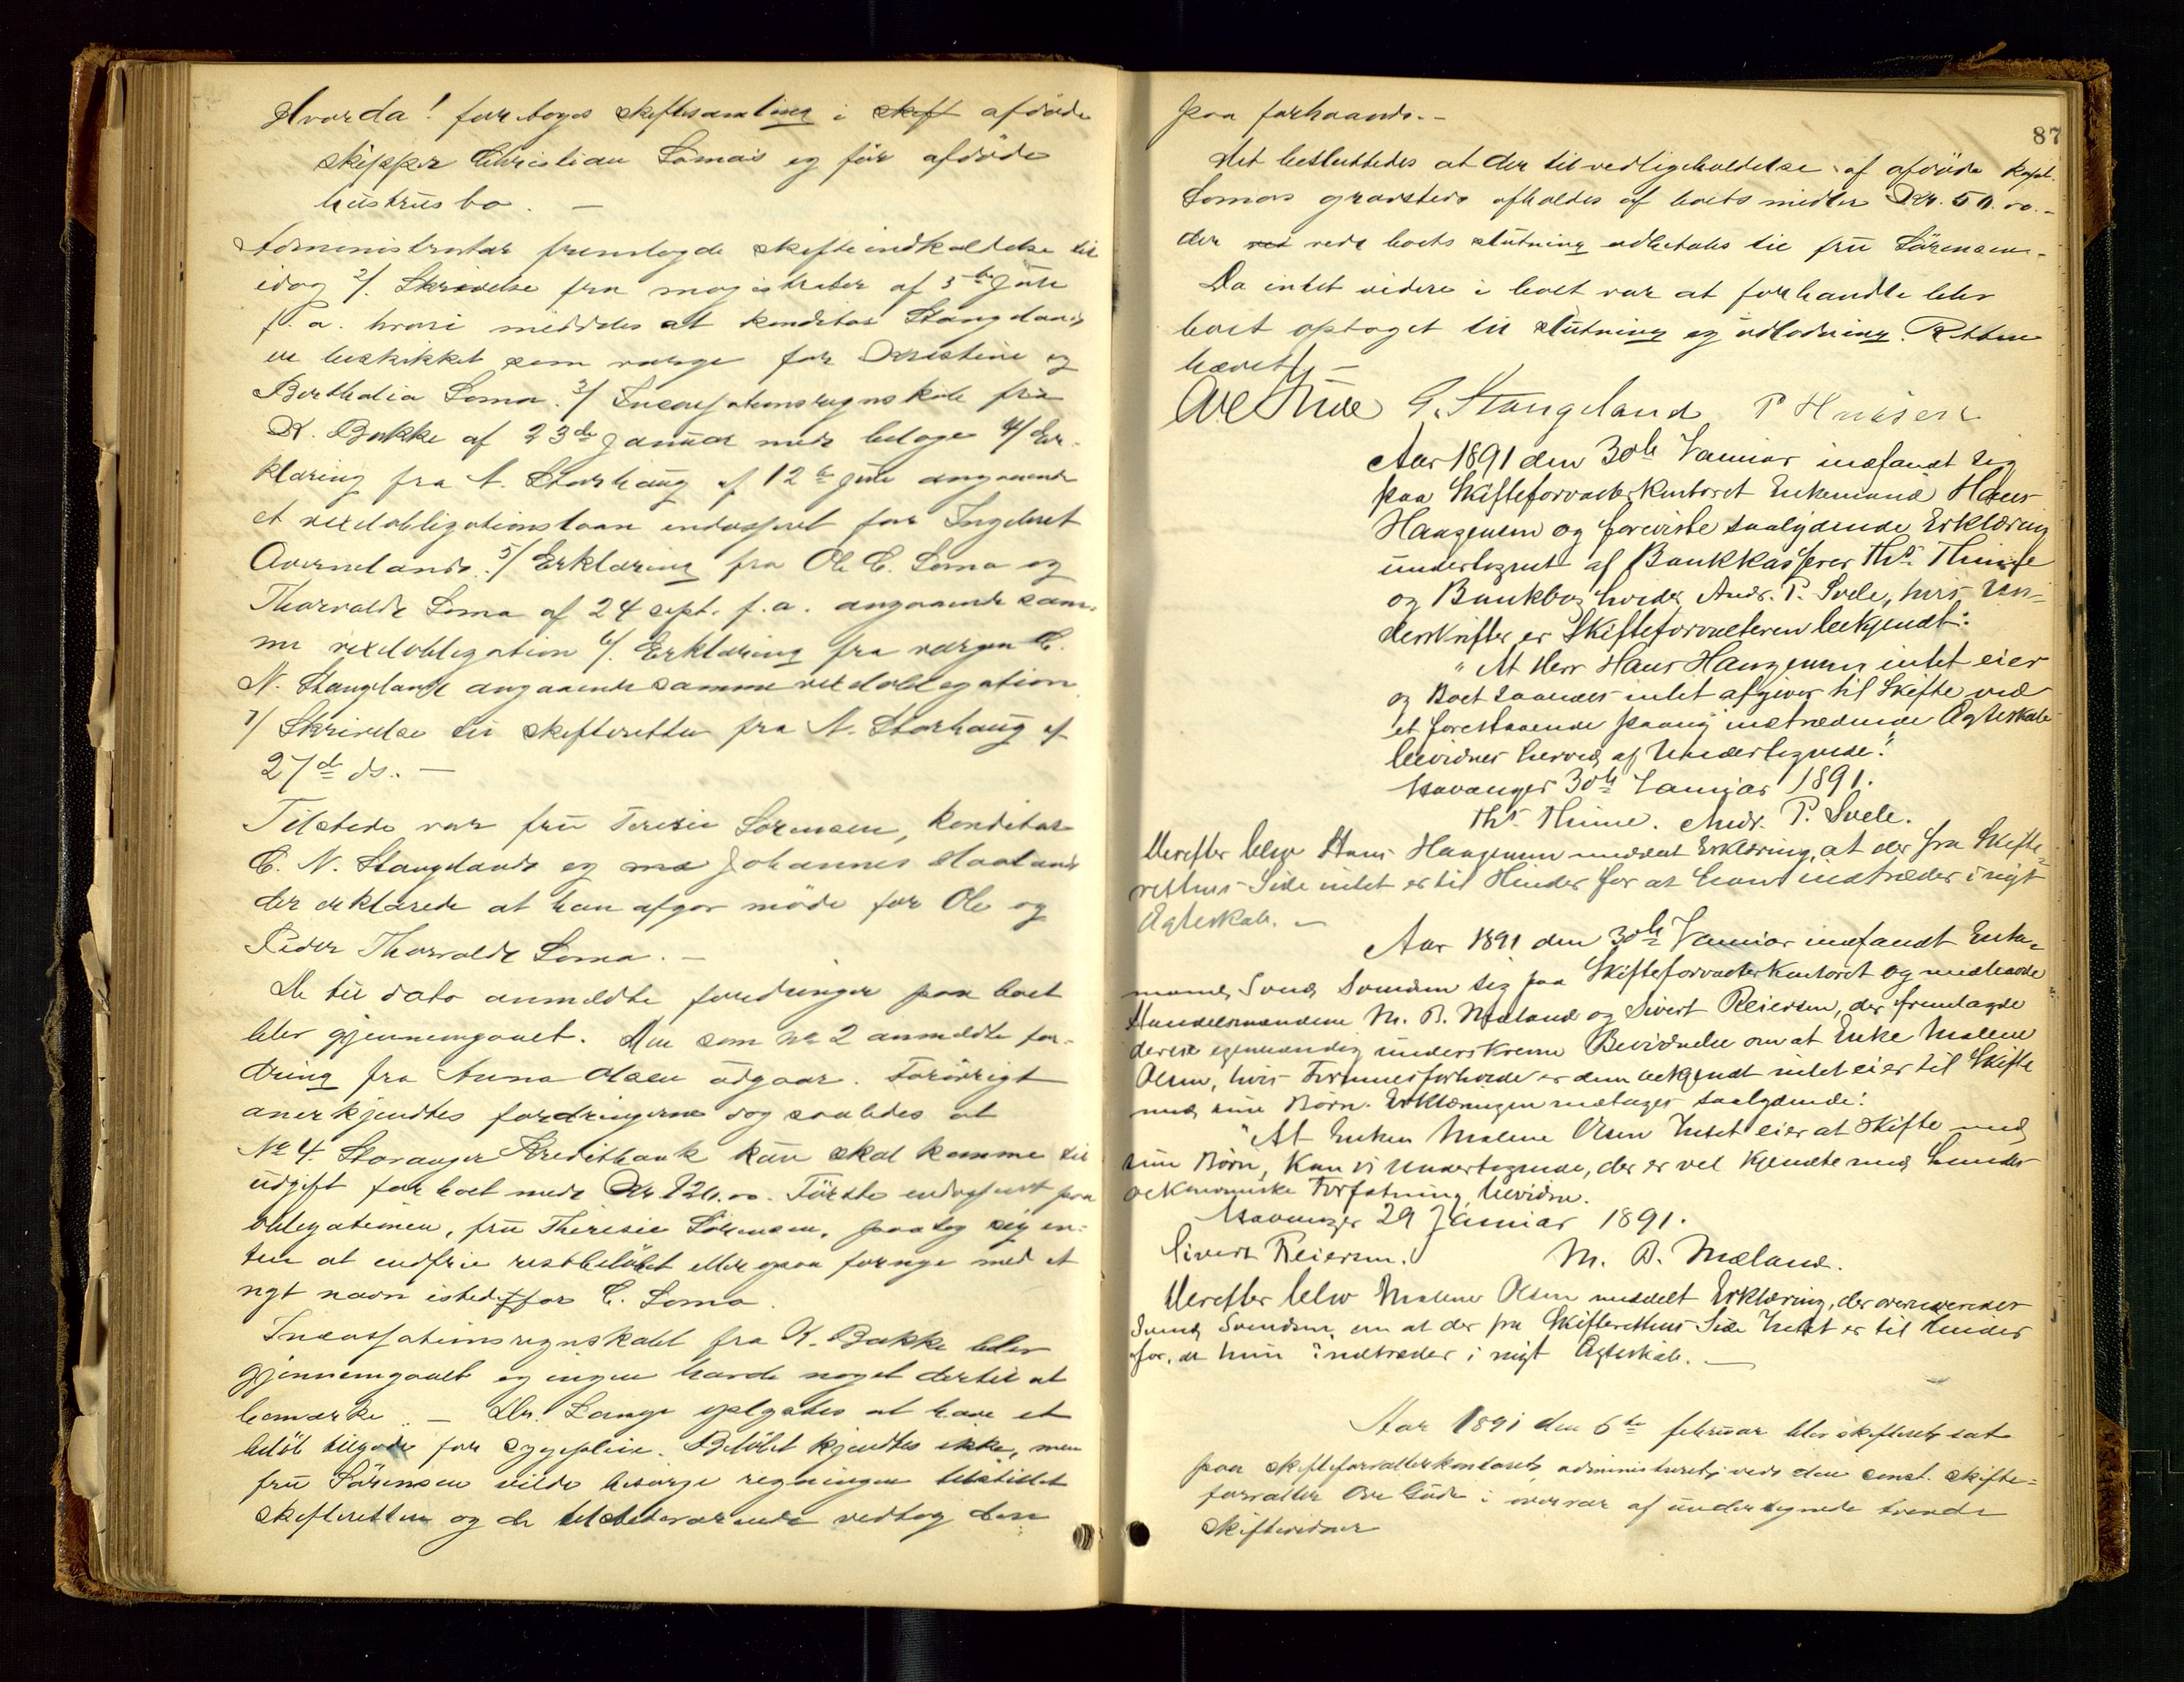 Hvorda! foretoges skiftesamling i skift afdøde
skipper Christian Lomas og før afdøde
hustrus bo. —
Administrator fremlagde skifteindkaldelse til
idag 2/. Skrivelse fra magistraten af 5te Juli
f. a. hvori meddeles at konditor Stangeland
er beskikket som værge for Kristine og
Berthalia Loma. 3/ Incassationsregnskab fra
K. Bakke af 23de Januar med bilage 4/ Er-
klæring fra A. Storhaug af 12te Juli angaaende
et vexelobligationslaan endosseret for Ingebret
Auernelands. 5/ Erklæring fra Ole C. Loma og
Thorvald Loma af 24 sept. f.a. angaaende sam-
me vexelobligation 6/. Erklæring fra værgen C.
N. Stangeland angaaende samme vexelobligation
7/ Skrivelse til skifteretten fra A. Storhaug af
27de ds. —
Tilstede var fru Teresie Sørensen, konditor
C. N. Stangeland og Johannes
der erklærede at han afgav møde for Ole og
Peder Thorvald Loma. —
De til dato anmeldte fordringer paa boet
blev gjennemgaaet. Den som No 2 anmeldte for-
dring fra Anna Olsen udgaar. Forøvrigt
anerkjendtes fordringerne dog saaledes at
No 4. Stavanger Kreditbank kun skal komme til
udgift for boet med Kr 120.00. Første endossent paa
obligationen, fru Theresie Sørensen, paatog sig en-
ten at indfrie restbeløbet eller ogsaa fornye med et
nyt navn istedetfor C. Loma.
Incassationsregnskabet fra K. Bakke blev
gjennemgaaet og ingen havde noget dertil at
bemærke. — Dr. Lange oplystes at have et
beløb tilgode for sygepleie. Beløbet kjendtes ikke, men
fru Sørensen vilde besørge regningen tilstillet
skifteretten og de tilstedeværende vedtog den
87
paa forhaand. —
Det besluttedes at der til vedligeholdelse af afdøde kapt.
Lomas gravsted afholdes af boets midler Kr. 50.00. —
der ved ved boets slutning udbetales til fru Sørensen. —
Da intet videre i boet var at forhandle blev
boet optaget til slutning og udlodning. Retten
hævet. —
Ove Gude G. Stangeland P Hansen
Aar 1891 den 30te Januar indfandt sig
paa Skifteforvalterkontoret Enkemand Hans
Haagensen og foreviste saalydende Erklæring
undertegnet af Bankkasserer Ths. Thime
og Bankbogholder Andr. P. Svele, hvis Un-
derskrifter er Skifteforvalteren bekjendt:
"At Herr Hans Haagensen intet eier
og Boet saaledes intet afgiver til Skifte ved
et forestaaende paany indtrædende Ægteskab
bevidnes herved af Undertegnede."
Stavanger 30te Januar 1891.
Ths. Thime. Andr. P. Svele.
Derefter blev Hans Haagensen meddelt Erklæring, at der fra Skifte-
rettens Side intet er til Hinder for at han indtræder i nyt
Ægteskab. —
Aar 1891 den 30te Januar indfandt Enke-
mand Svend Svendsen sig paa Skifteforvalterkontoret og medhavde
Handelsmændene M. B. Mæland og Sivert Reiersen, der fremlagde
deres egenhændig underskrevne Bevidnelse om at Enke Malene
Olsen, hvis Formuesforholde er dem bekjendt intet eier til Skifte
med sine Børn. Erklæringen medtages saalydende:
"At Enken Malene Olsen Intet eier at skifte med
sine Børn, kan vi Undertegnede, der er vel kjendte med hendes
oekonomiske Forfatning, bevidne.
Stavanger 29 Januar 1891.
Sivert Reiersen. M. B. Mæland.
Derefter blev Malene Olsen meddelt Erklæring, der
Svend Svendsen, om at der fra Skifterettens Side Intet er til Hinder
for, at hun indtræder i nyt Ægteskab. —
Aar 1891 den 6te februar blev skifteret sat
paa skifteforvalterkontoret, administreret ved den const. skifte-
forvalter Ove Gude i overvær af undertegnede tvende
skiftevidner